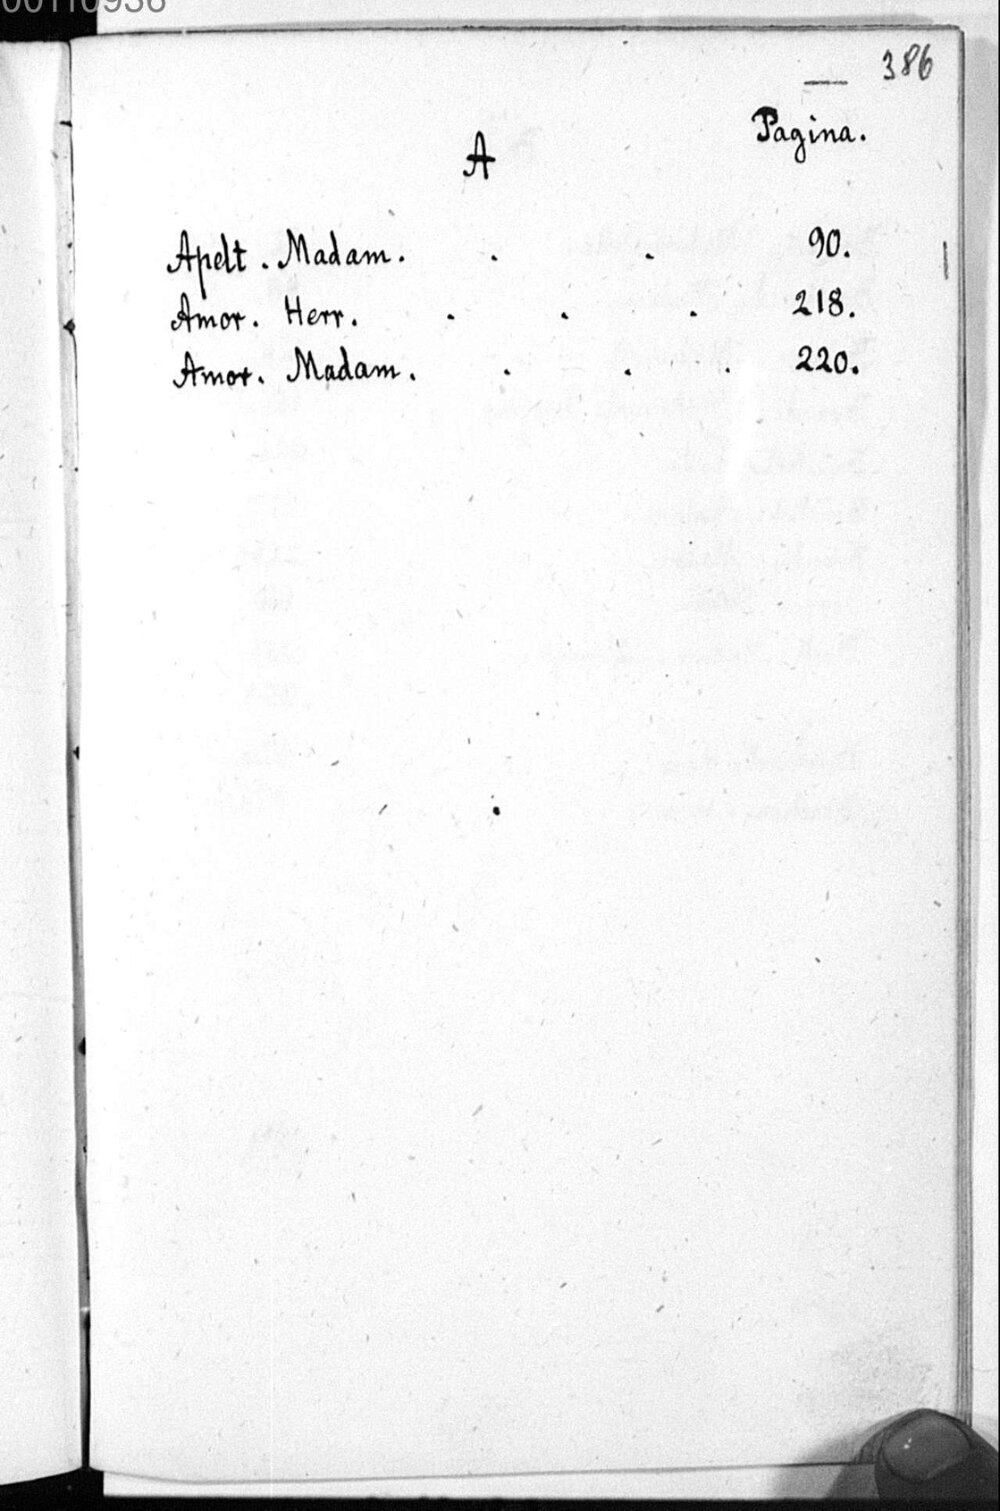 386
Pagina.
A
Apelt. Madam. . . 90.
Amor. Herr. . . . 218.
Amor. Madam. . . . 220.